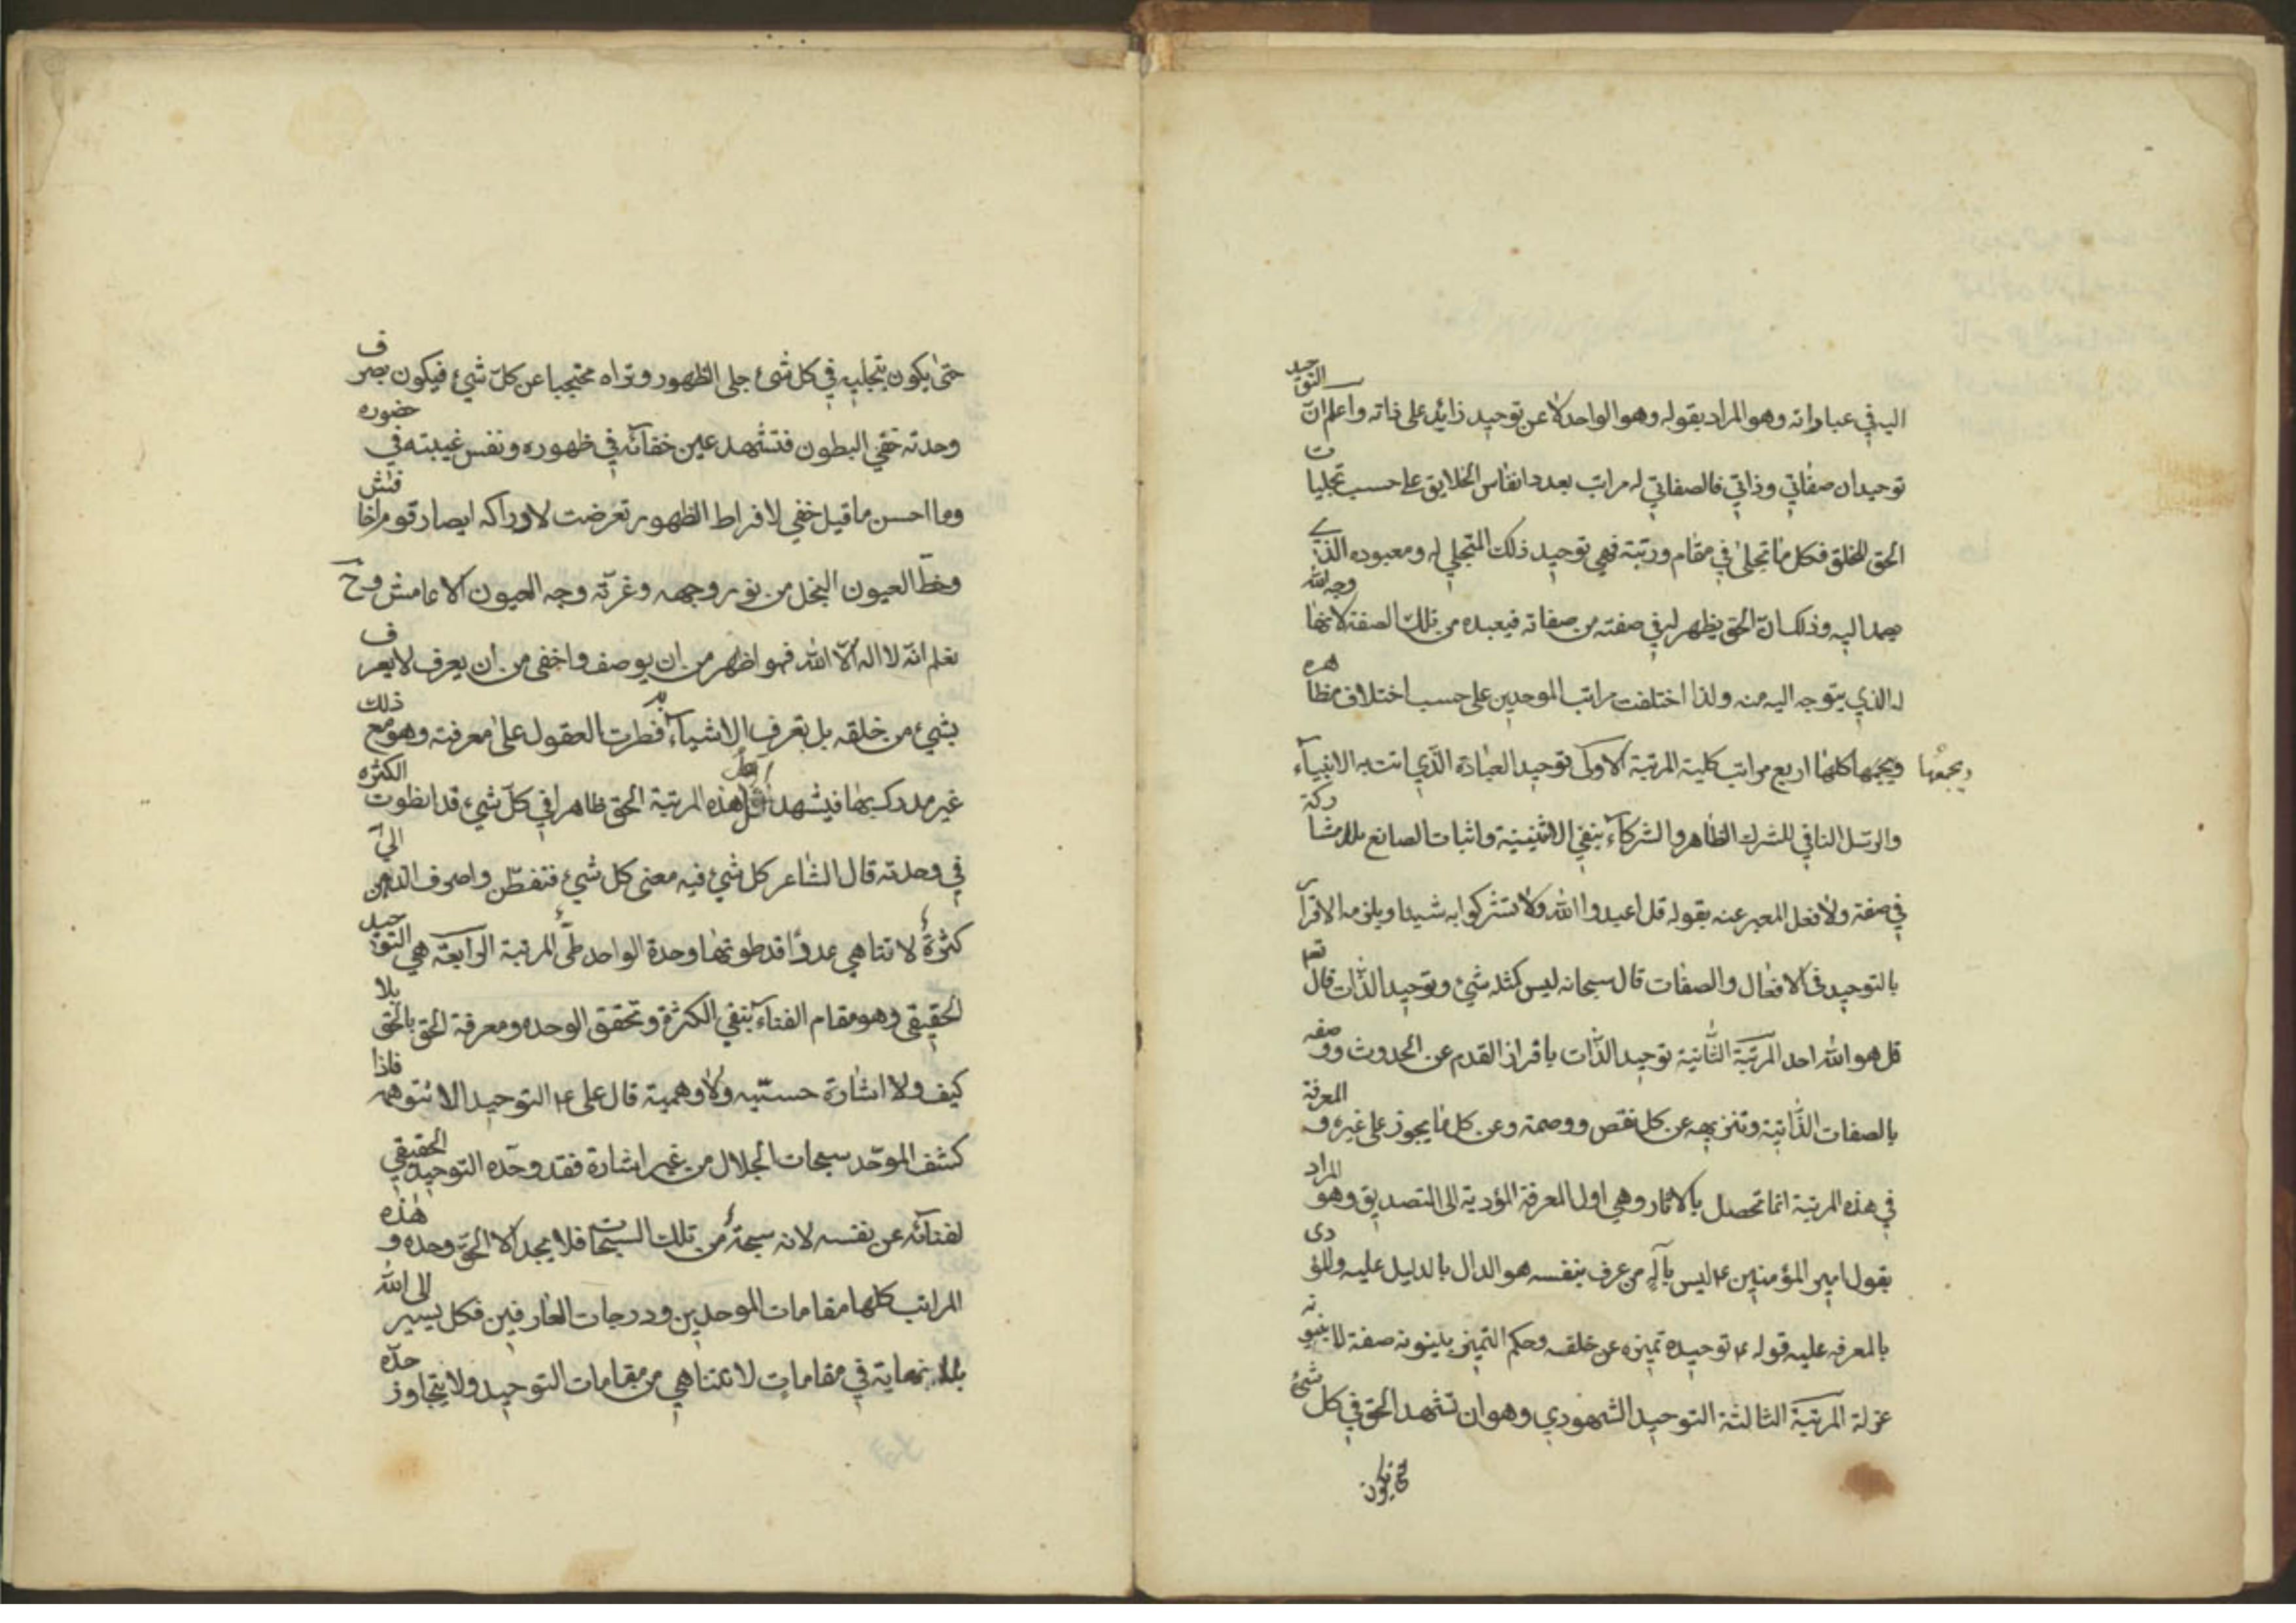 اليه في عباراته وهو المراد بقوله وهو الواحد لا عن توحيد زائد على ذاته واعلم ان التوحيد
توحيدان صفاتي وذاتي فالصفاتي له مراتب بعدد انفاس الخلايق على حسب تجليات
الحق للخلق فكل ما تجلى في مقام ورتبة فهي توحيد ذلك المتجلي له ومعبوده الذي
يصمد اليه وذلك ان الحق يظهر له في صفته من صفاته فيعبده من تلك الصفة لانها وجه الله
له الذي يتوجه اليه منه ولذا اختلفت مراتب الموحدين على حسب اختلاف مظاهره
ويجمعها كلها اربع مراتب كلية المرتبة الاولى توحيد العبادة الذي اتت به الانبياء
ويجمعها
والرسل النافي للشرك الظاهر والشركاء بنفي الاثنينية واثبات الصانع بلا مشاركة
في صفة ولا فعل المعبر عنه بقوله قل اعبدوا الله ولا تشركوا به شيئا ويلزمه الاقرار
بالتوحيد في الافعال والصفات قال سبحانه ليس كمثله شيء وتوحيد الذات قال تعا
قل هو الله احد المرتبة الثانية توحيد الذات بافراز القدم عن الحدوث ووصفه
بالصفات الذاتية وتنزيهه عن كل نقص ووصمة وعن كل ما يجوز على غيره و المعرفة
في هذه المرتبة انما تحصل بالاثار وهي اول المعرفة المؤدية الى التصديق وهو المراد
بقول امير المؤمنين ع ليس بآله من عرف بنفسه هو الدال بالدليل عليه والمؤدى
بالمعرفه عليه قوله ع توحيده تميزه عن خلقه وحكم التميز بينونه صفة لا بينونه
عزلة المرتبة الثالثة التوحيد الشهودي وهو ان تشهد الحق في كل شئ
حتى يكون
حتى يكون بتجليه في كل شئ جلى الظهور وتراه محتجبا عن كل شيء فيكون بصرف
وحدته خفي البطون فتشهد عين خفائه في ظهوره ونفس غيبته في حضوره
وما احسن ما قيل خفي لافراط الظهور تعرضت لادراكه ابصار قوم اخافش
وحظ العيون النجل من نور وجهه وغرته وجه العيون الاعامش وح
نعلم انه لا اله الا الله فهو اظهر من ان يوصف واخفى من ان يعرف لا يعرف
بشيء من خلقه بل به تعرف الاشياء فطرت العقول على معرفته وهو مع ذلك
غير مدرك بها فيشهد اهل هذه المرتبة الحق ظاهرا في كل شيء قد انطوت الكثره
في وحدته قال الشاعر كل شيء فيه معنى كل شيء فتفطن واصرف الذهن الي
كثرة لا تتناهي عددا قد طوتها وحدة الواحد طي المرتبة الرابعة هي التوحيد
الحقيقي وهو مقام الفناء بنفي الكثرة وتحقق الوحده ومعرفة الحق بالحق بلا
كيف ولا اشارة حسيه ولا وهمية قال علي ع التوحيد الا تتوهمه فاذا
كشف الموحد سبحات الجلال من غير اشارة فقد وحده التوحيد الحقيقي
لفنائه عن نفسه لانه سبحة من تلك السبحات فلا يجد الا الحق وحده و هذه
المراتب كلها مقامات الموحدين ودرجات العارفين فكل يسير الى الله
بلا نهاية في مقامات لا تتناهي من مقامات التوحيد ولا يتجاوز حده